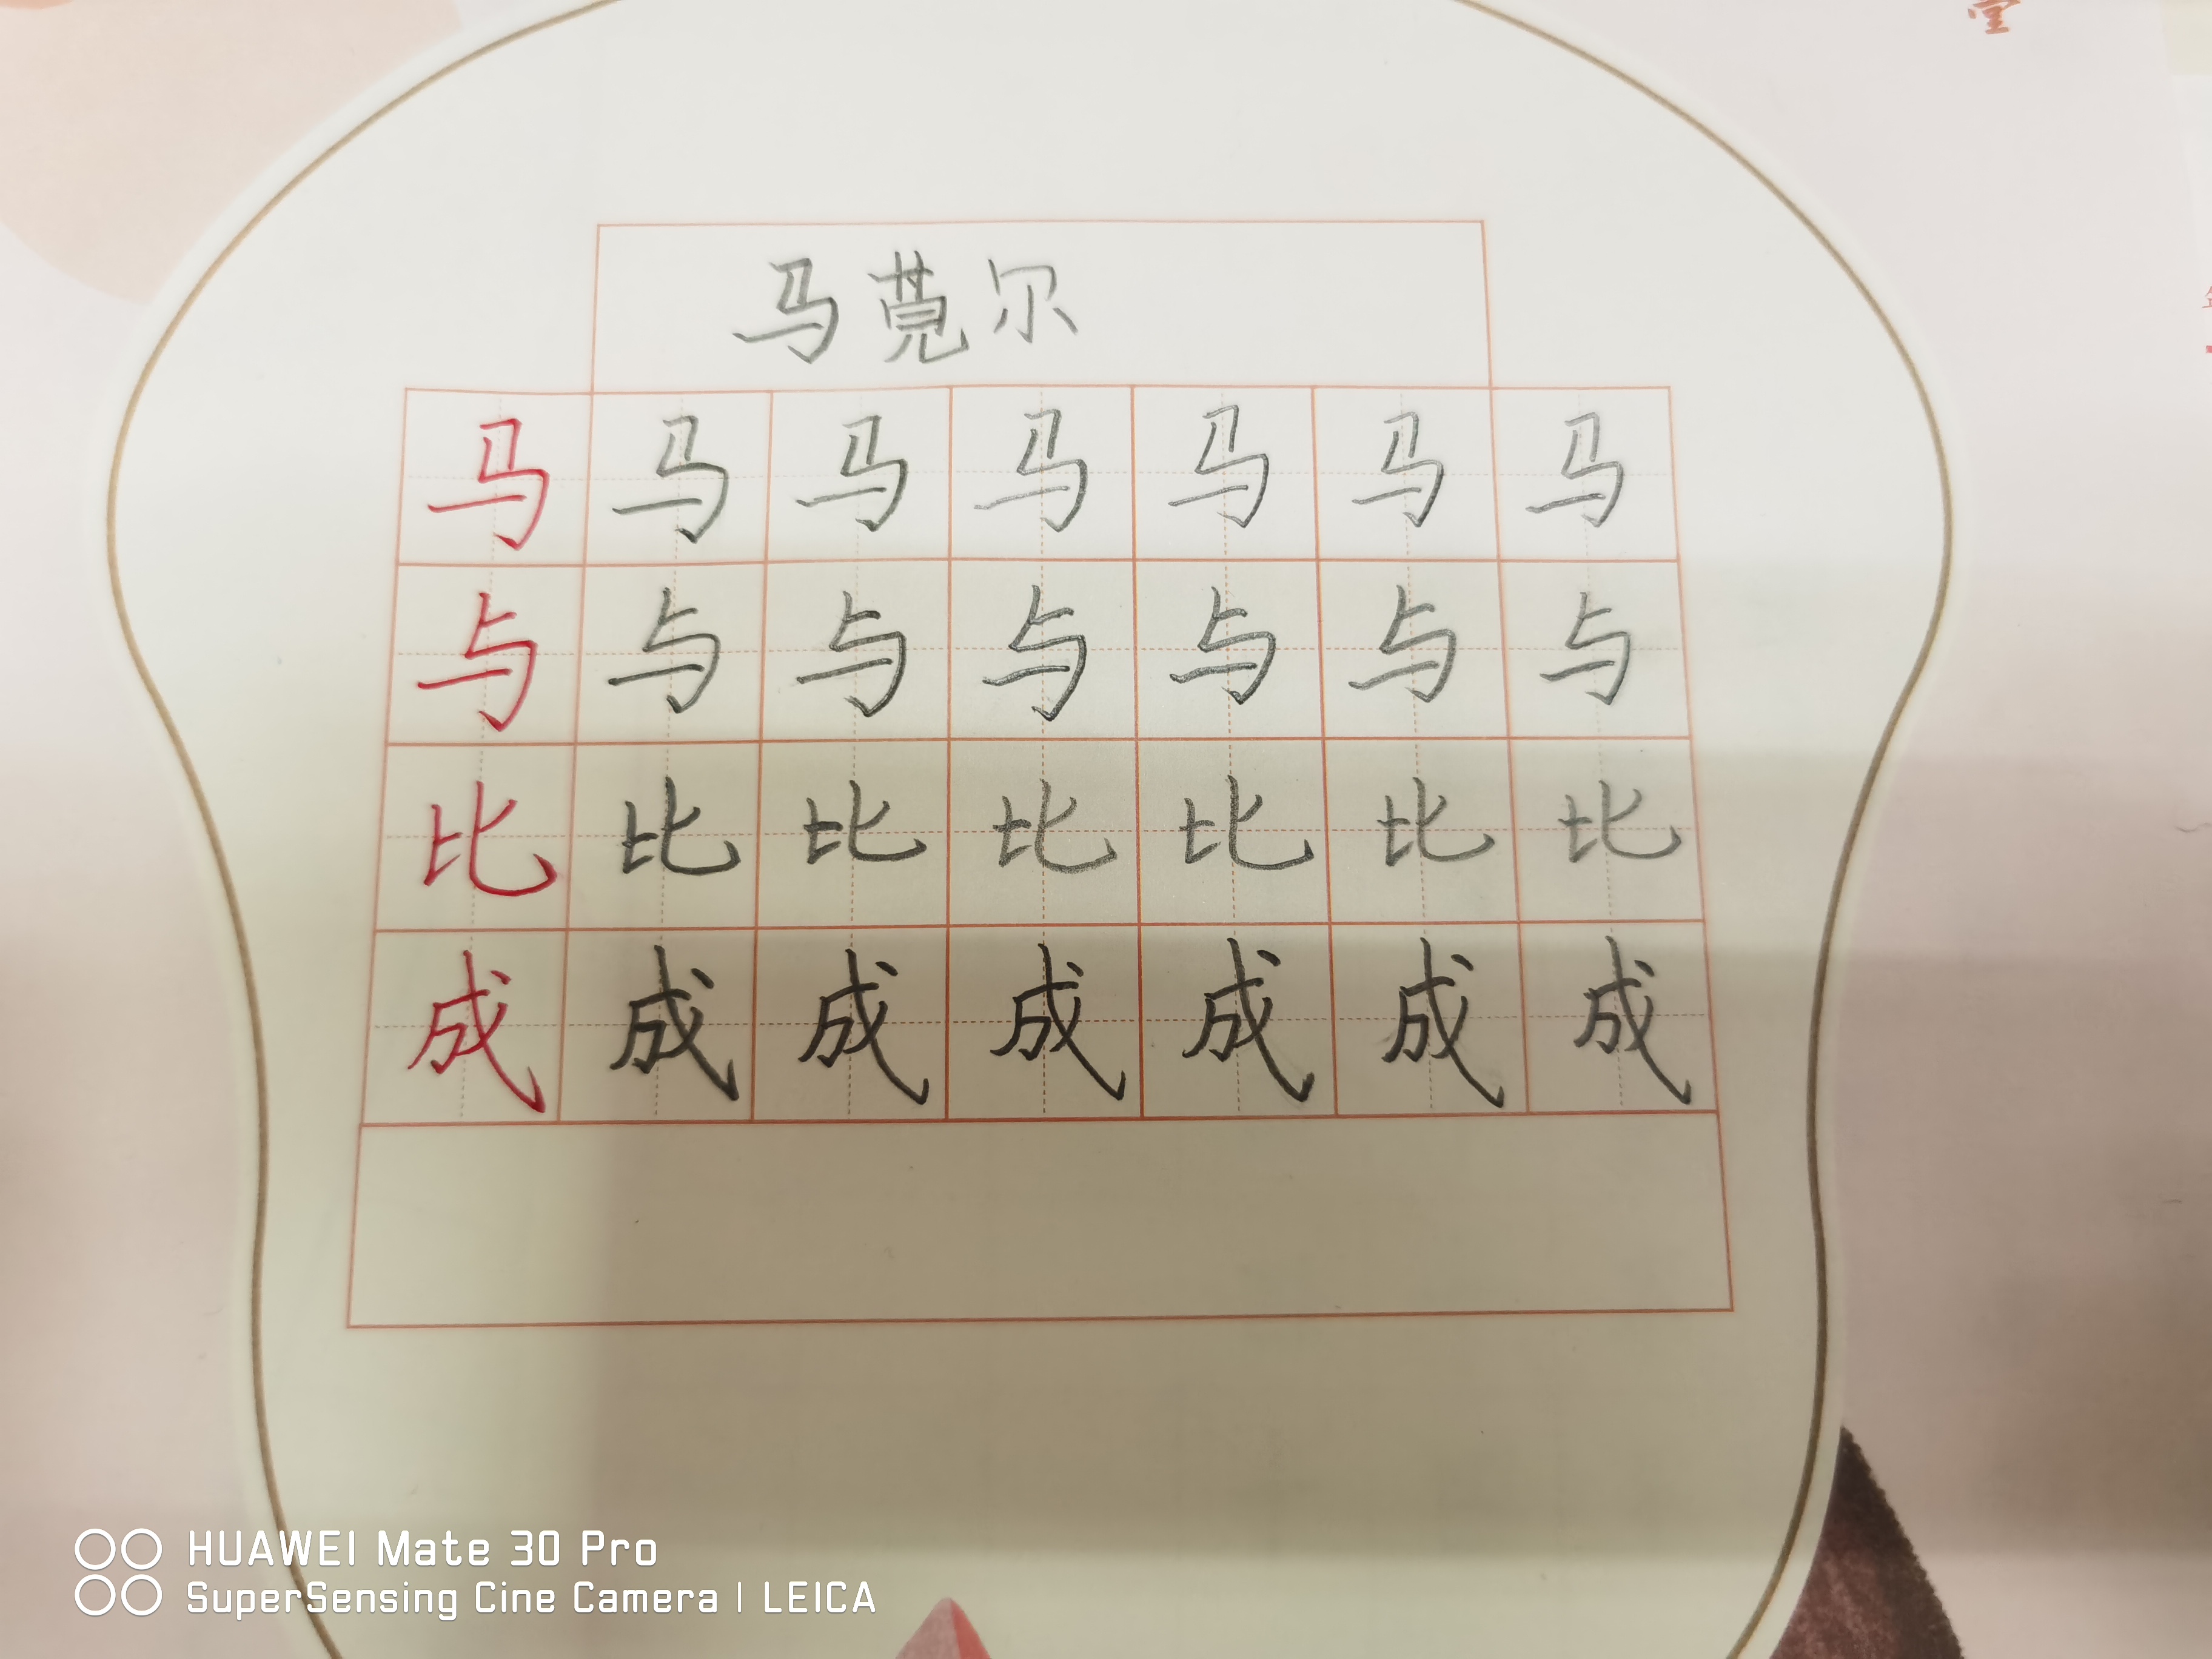 堂
马莧尔
马 马 马 马 马 马 马
与 与 与 与 与 与 与
比 比 比 比 比 比 比
成 成 成 成 成 成 成
HUAWEI Mate 30 Pro
SuperSensing Cine Camera | LEICA